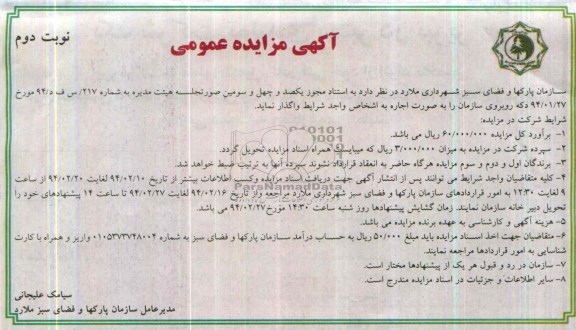 نوبت دوم
آگهی مزایده عمومی
سازمان پارکها و فضای سبز شهرداری ملارد در نظر دارد به استناد مجوز یکصد و چهل و سومین صورتجلسه هیئت مدیره به شماره ۲۱۷/ س ف د/۹۴ مورخ
۹۴/۰۱/۲۷ دکه روبروی سازمان را به صورت اجاره به اشخاص واجد شرایط واگذار نماید.
شرایط شرکت در مزایده:
۱- برآورد کل مزایده ۶۰/۰۰۰/۰۰۰ ریال می باشد.
۲- سپرده شرکت در مزایده به میزان ۳/۰۰۰/۰۰۰ ریال که میبایست همراه اسناد مزایده تحویل گردد.
۳- برندگان اول و دوم و سوم مزایده هرگاه حاضر به انعقاد قرارداد نشوند سپرده آنها به ترتیب ضبط خواهد شد.
۴- کلیه متقاضیان واجد شرایط می توانند پس از انتشار آگهی جهت دریافت اسناد مزایده وکسب اطلاعات بیشتر از تاریخ ۹۴/۰۲/۱۰ لغایت ۹۴/۰۲/۲۰ از ساعت
۹ لغایت ۱۲:۳۰ به امور قراردادهای سازمان پارکها و فضای سبز شهرداری ملارد مراجعه واز تاریخ ۹۴/۰۲/۱۶ لغایت ۹۴/۰۲/۲۷ تا ساعت ۱۴ پیشنهادهای خود را
تحویل دبیر خانه سازمان نمایند. زمان گشایش پیشنهادها روز شنبه ساعت ۱۴:۳۰ مورخ ۹۴/۰۲/۲۷ می باشد.
۵- هزینه آگهی و کارشناسی به عهده برنده مزایده می باشد.
۶- متقاضیان جهت اخذ اسناد مزایده باید مبلغ ۵۰/۰۰۰ ریال به حساب درآمد سازمان پارکها و فضای سبز به شماره ۰۱۰۵۳۷۳۷۴۸۰۰۴ واریز و همراه با کارت
شناسایی به امور قراردادها مراجعه نمایند.
۷- سازمان در رد و قبول هر یک از پیشنهادها مختار است.
۸- سایر اطلاعات و جزئیات در اسناد مزایده مندرج است.
سیامک علیجانی
مدیرعامل سازمان پارکها و فضای سبز ملارد
ParsNamadData